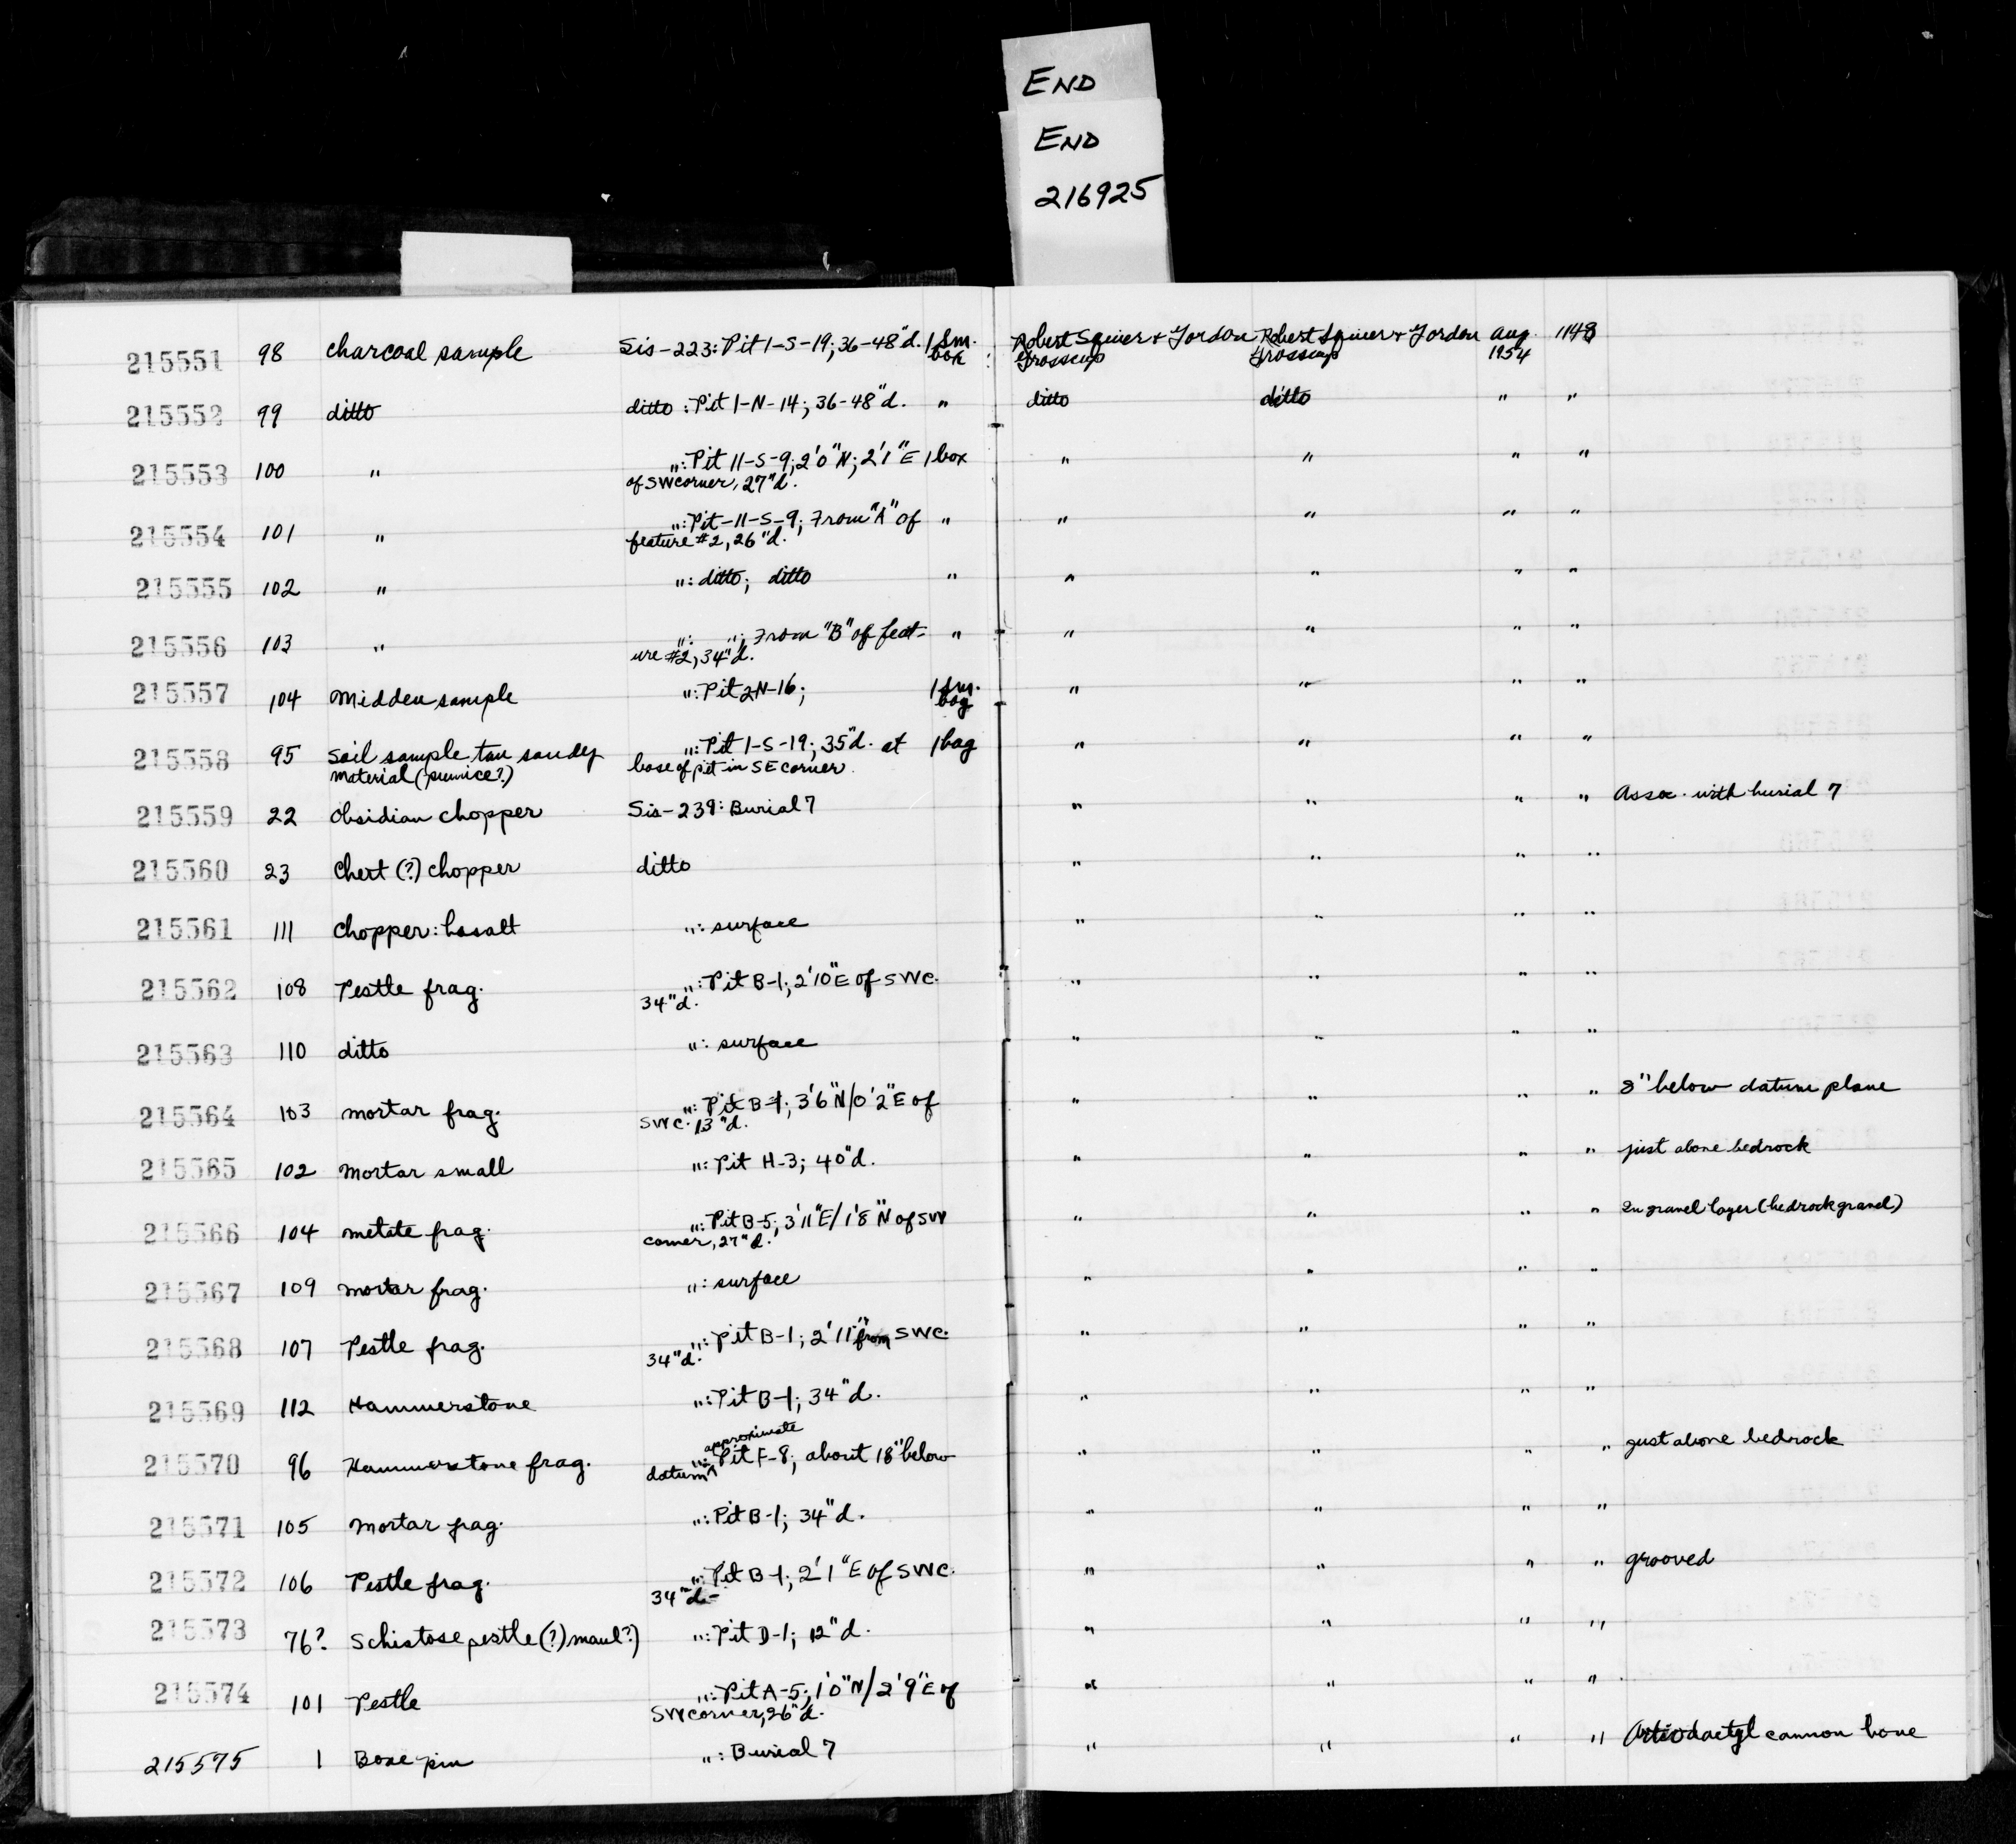 END
END
216925
215551 98 Charcoal sample Sis-223: Pit 1-S-19; 36-48"d. 1 sm. box Robert Squier + Gordon Grosscup Robert Squier + Gordon Grosscup Aug. 1954 1148
215552 99 ditto ditto: Pit 1-N-14; 36-48"d. " ditto ditto " "
215553 100 " ": Pit 11-S-9; 2'0"N; 2'1"E 1 box " " " "
of SW corner, 27"d.
215554 101 " ": Pit-11-S-9; From "A" of " " " " "
feature #2, 26"d.
215555 102 " ": ditto; ditto " " " " "
215556 103 " ": "; From "B" of feat- " " " " "
ure #2, 34"d.
215557 104 Midden sample ": Pit 2N-16; 1 sm. bag " " " "
215558 95 Soil sample tan sandy ": Pit 1-S-19; 35"d. at 1 bag " " " "
material (pumice?) base of pit in SE corner.
215559 22 Obsidian chopper Sis-239: Burial 7 " " " " Assoc. with burial 7
215560 23 Chert (?) chopper ditto " " " "
215561 111 Chopper: basalt ": surface " " " "
215562 108 Pestle frag. ": Pit B-1; 2'10"E of SWC. " " " "
34"d.
215563 110 ditto ": surface " " " "
215564 103 mortar frag. ": Pit B-1; 3'6"N/0'2"E of " " " " 8" below datum plane
SWC. 13"d.
215565 102 Mortar small ": Pit H-3; 40"d. " " " " just above bedrock
215566 104 metate frag. ": Pit B-5; 3'11"E/1'8"N of SW " " " " In gravel layer (bedrock gravel)
corner, 27"d.
215567 109 mortar frag. ": surface " " " "
215568 107 Pestle frag. ": Pit B-1; 2'11" from SWC. " " " "
34"d.
215569 112 Hammerstone ": Pit B-1; 34"d. " " " "
approximate
215570 96 Hammerstone frag. ": Pit F-8; about 18" below " " " " just above bedrock
datum ^
215571 105 Mortar frag. ": Pit B-1; 34"d. " " " "
215572 106 Pestle frag. ": Pit B-1; 2'1"E of SWC. " " " " grooved
34"d-
215573 76? Schistose pestle (?) maul?) ": Pit D-1; 12"d. " " " "
215574 101 Pestle ": Pit A-5; 1'0"N/2'9"E of " " " "
SW corner, 26"d.
215575 1 Bone pin ": Burial 7 " " " " Artiodactyl cannon bone